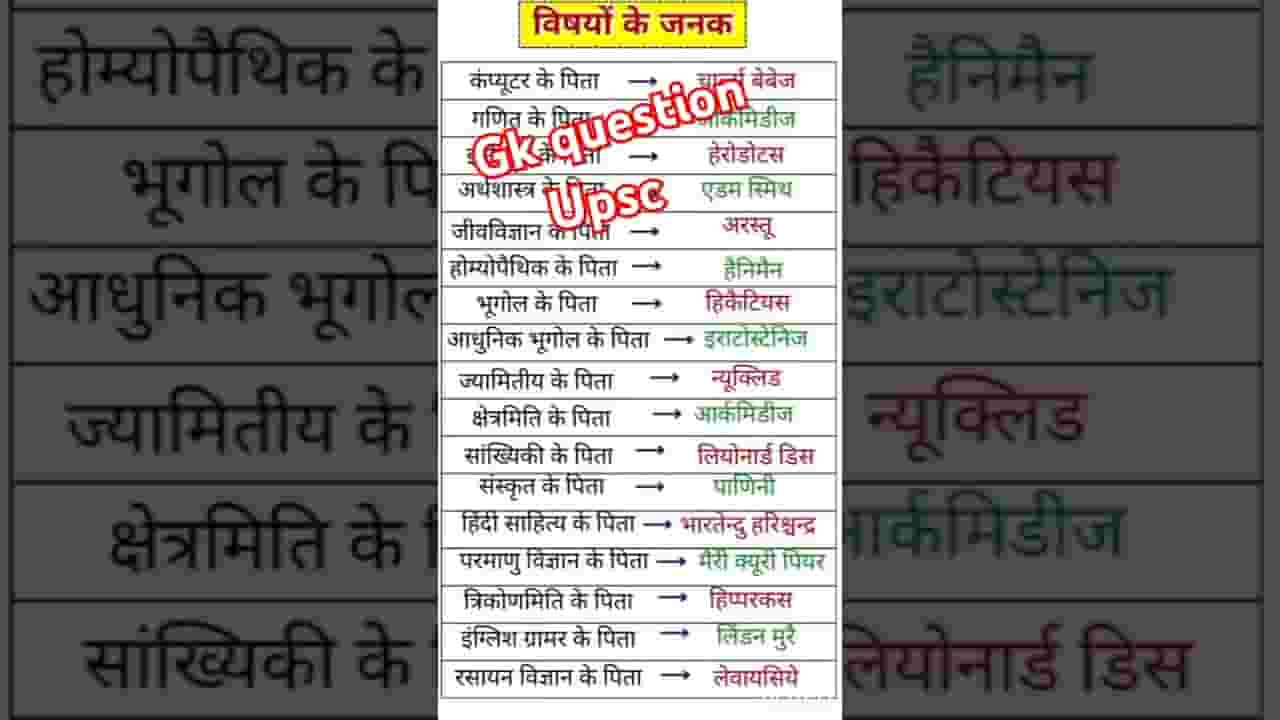 विषयों के जनक
कंप्यूटर के पिता → चार्ल्स बेबेज
गणित के पिता आर्कमिडीज
Gk question
के पिता → हेरोडोटस
अर्थशास्त्र के पिता एडम स्मिथ
Upsc
जीवविज्ञान के पिता → अरस्तू
होम्योपैथिक के पिता → हैनिमैन
भूगोल के पिता → हिकैटियस
आधुनिक भूगोल के पिता → इराटोस्टेनिज
ज्यामितीय के पिता → न्यूक्लिड
क्षेत्रमिति के पिता → आर्कमिडीज
सांख्यिकी के पिता → लियोनार्ड डिस
संस्कृत के पिता → पाणिनी
हिंदी साहित्य के पिता → भारतेन्दु हरिश्चन्द्र
परमाणु विज्ञान के पिता → मैरी क्यूरी पियर
त्रिकोणमिति के पिता → हिप्परकस
इंग्लिश ग्रामर के पिता → लिंडन मुरै
रसायन विज्ञान के पिता → लेवायसिये
होम्योपैथिक के हैनिमैन
भूगोल के हिकैटियस
आधुनिक भूगोल इराटोस्टेनिज
ज्यामितीय के न्यूक्लिड
क्षेत्रमिति के आर्कमिडीज
सांख्यिकी के लियोनार्ड डिस